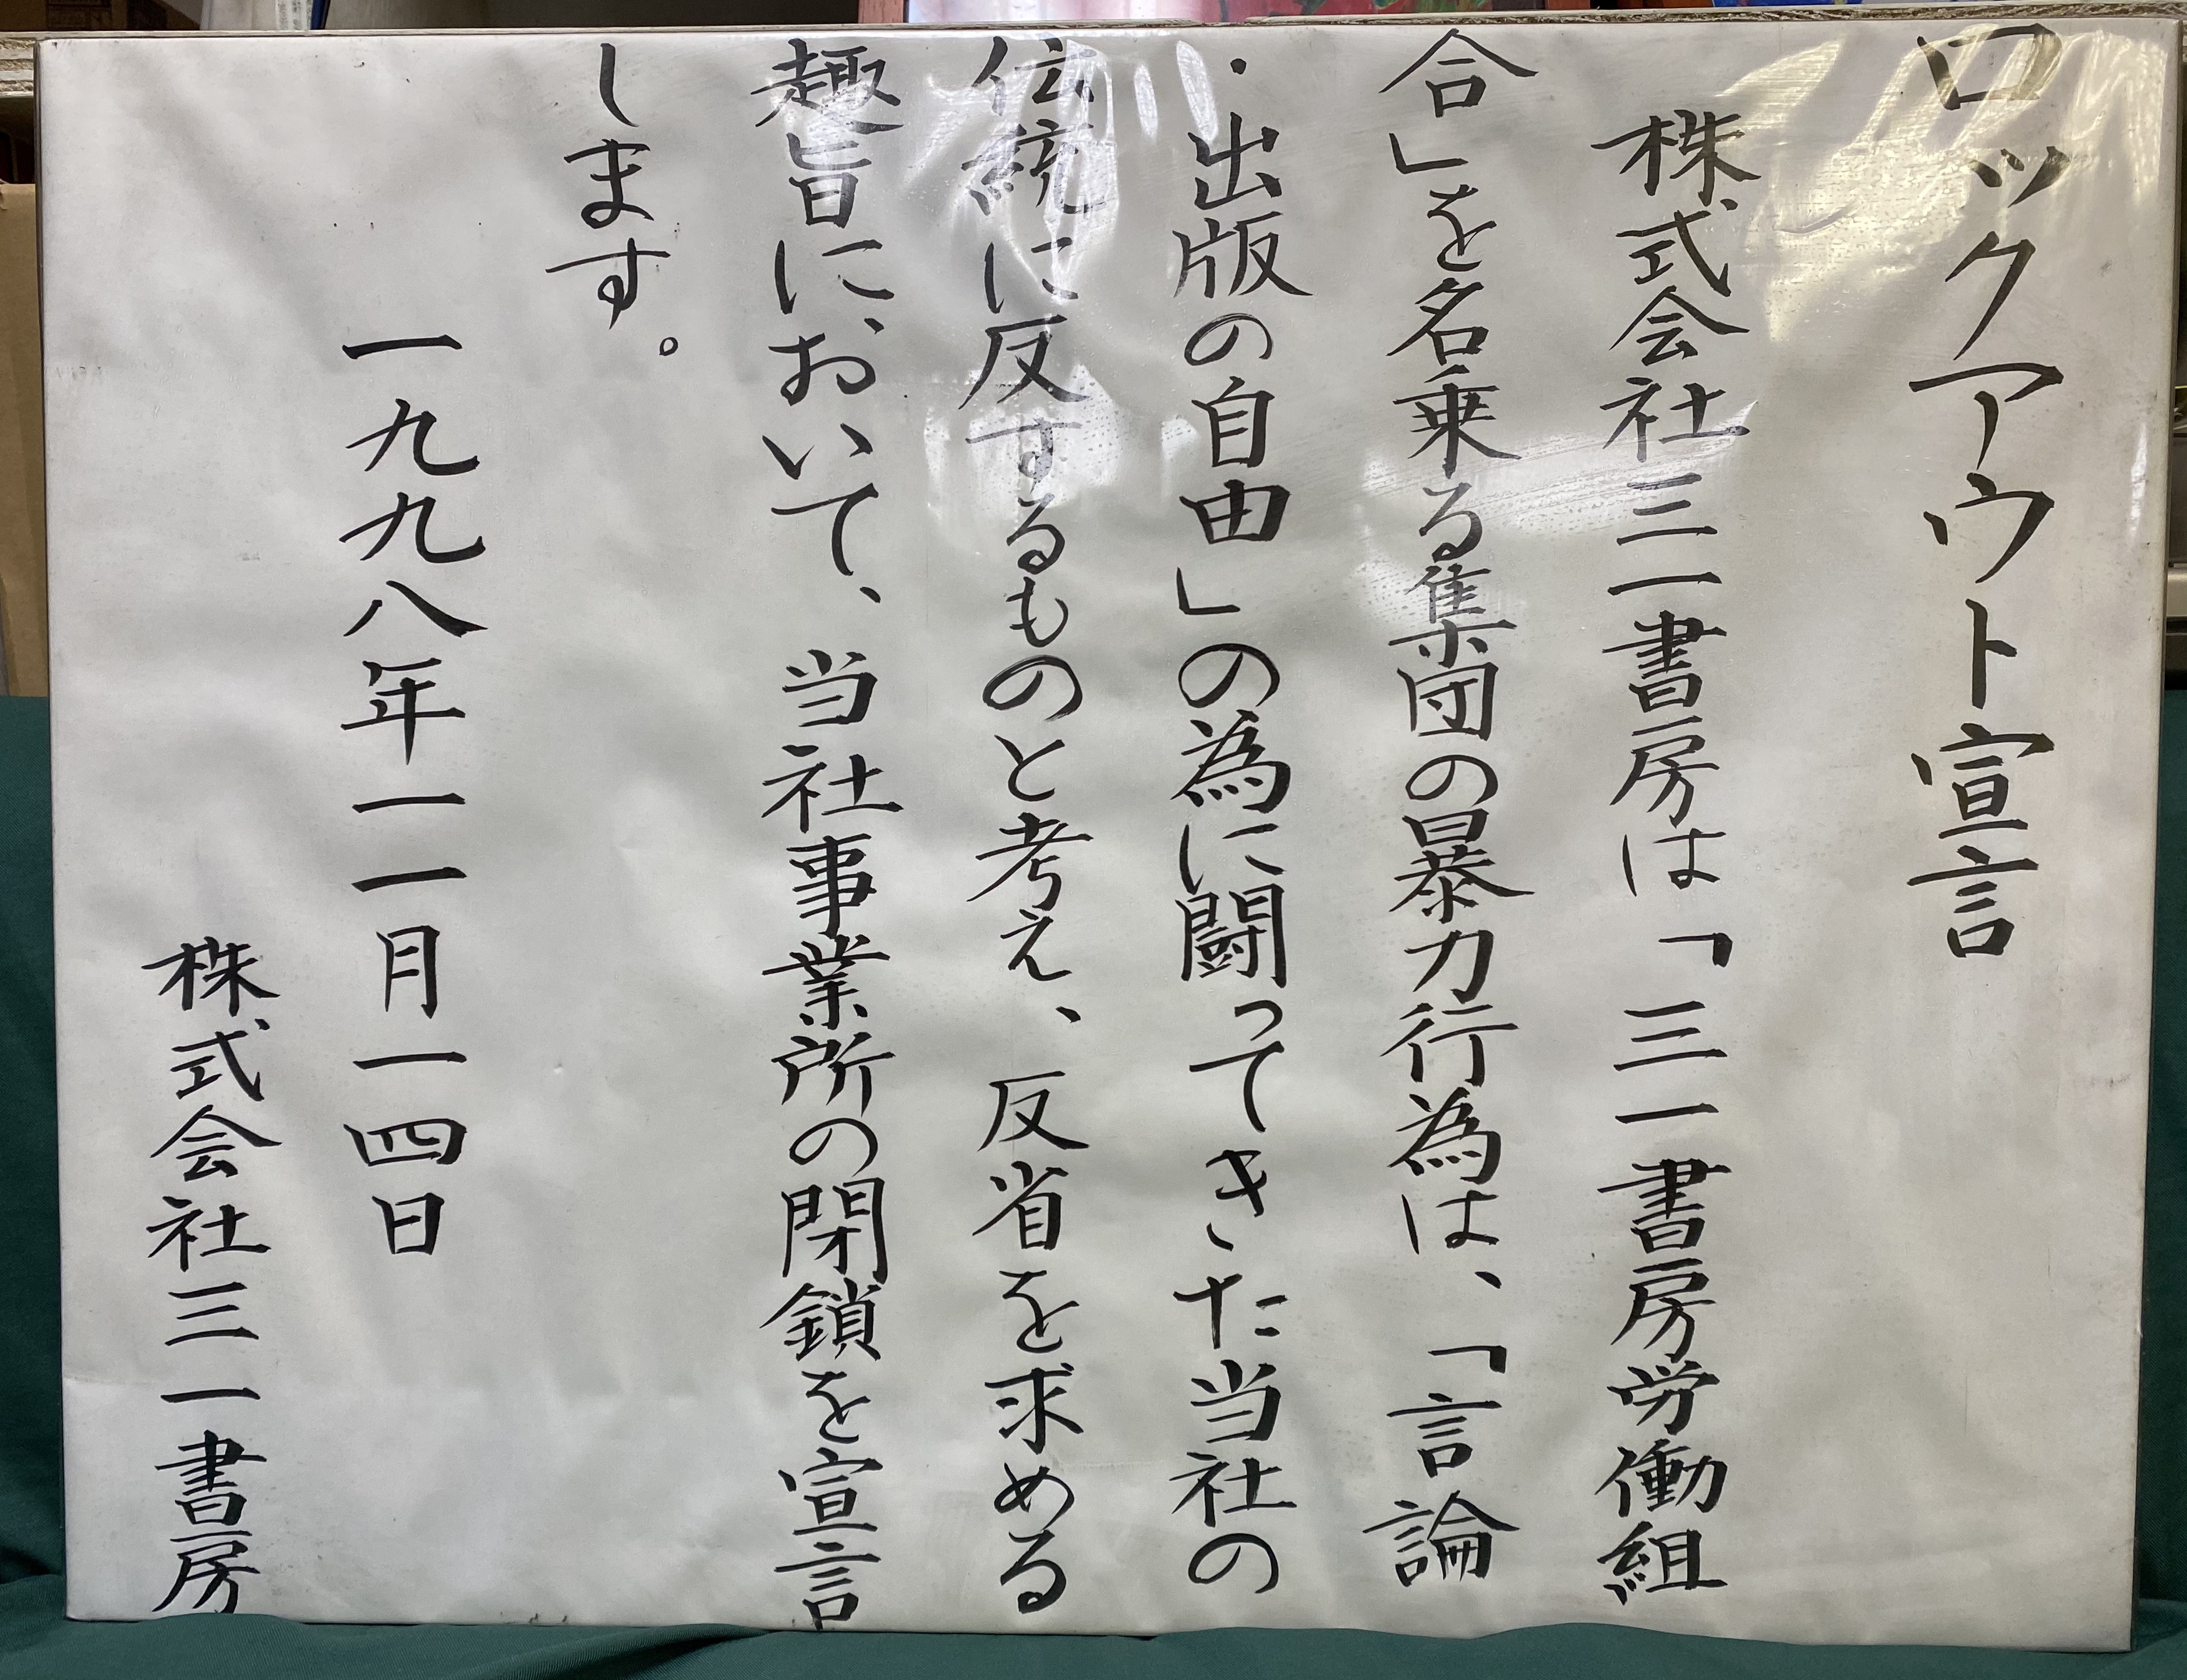 ロックアウト宣言
株式会社三一書房は「三一書房労働組
合」を名乗る集団の暴力行為は、「言論
・出版の自由」の為に闘ってきた当社の
伝統に反するものと考え、反省を求める
趣旨に、おいて、当社事業所の閉鎖を宣言
します。
一九九八年一一月一四日
株式会社三一書房